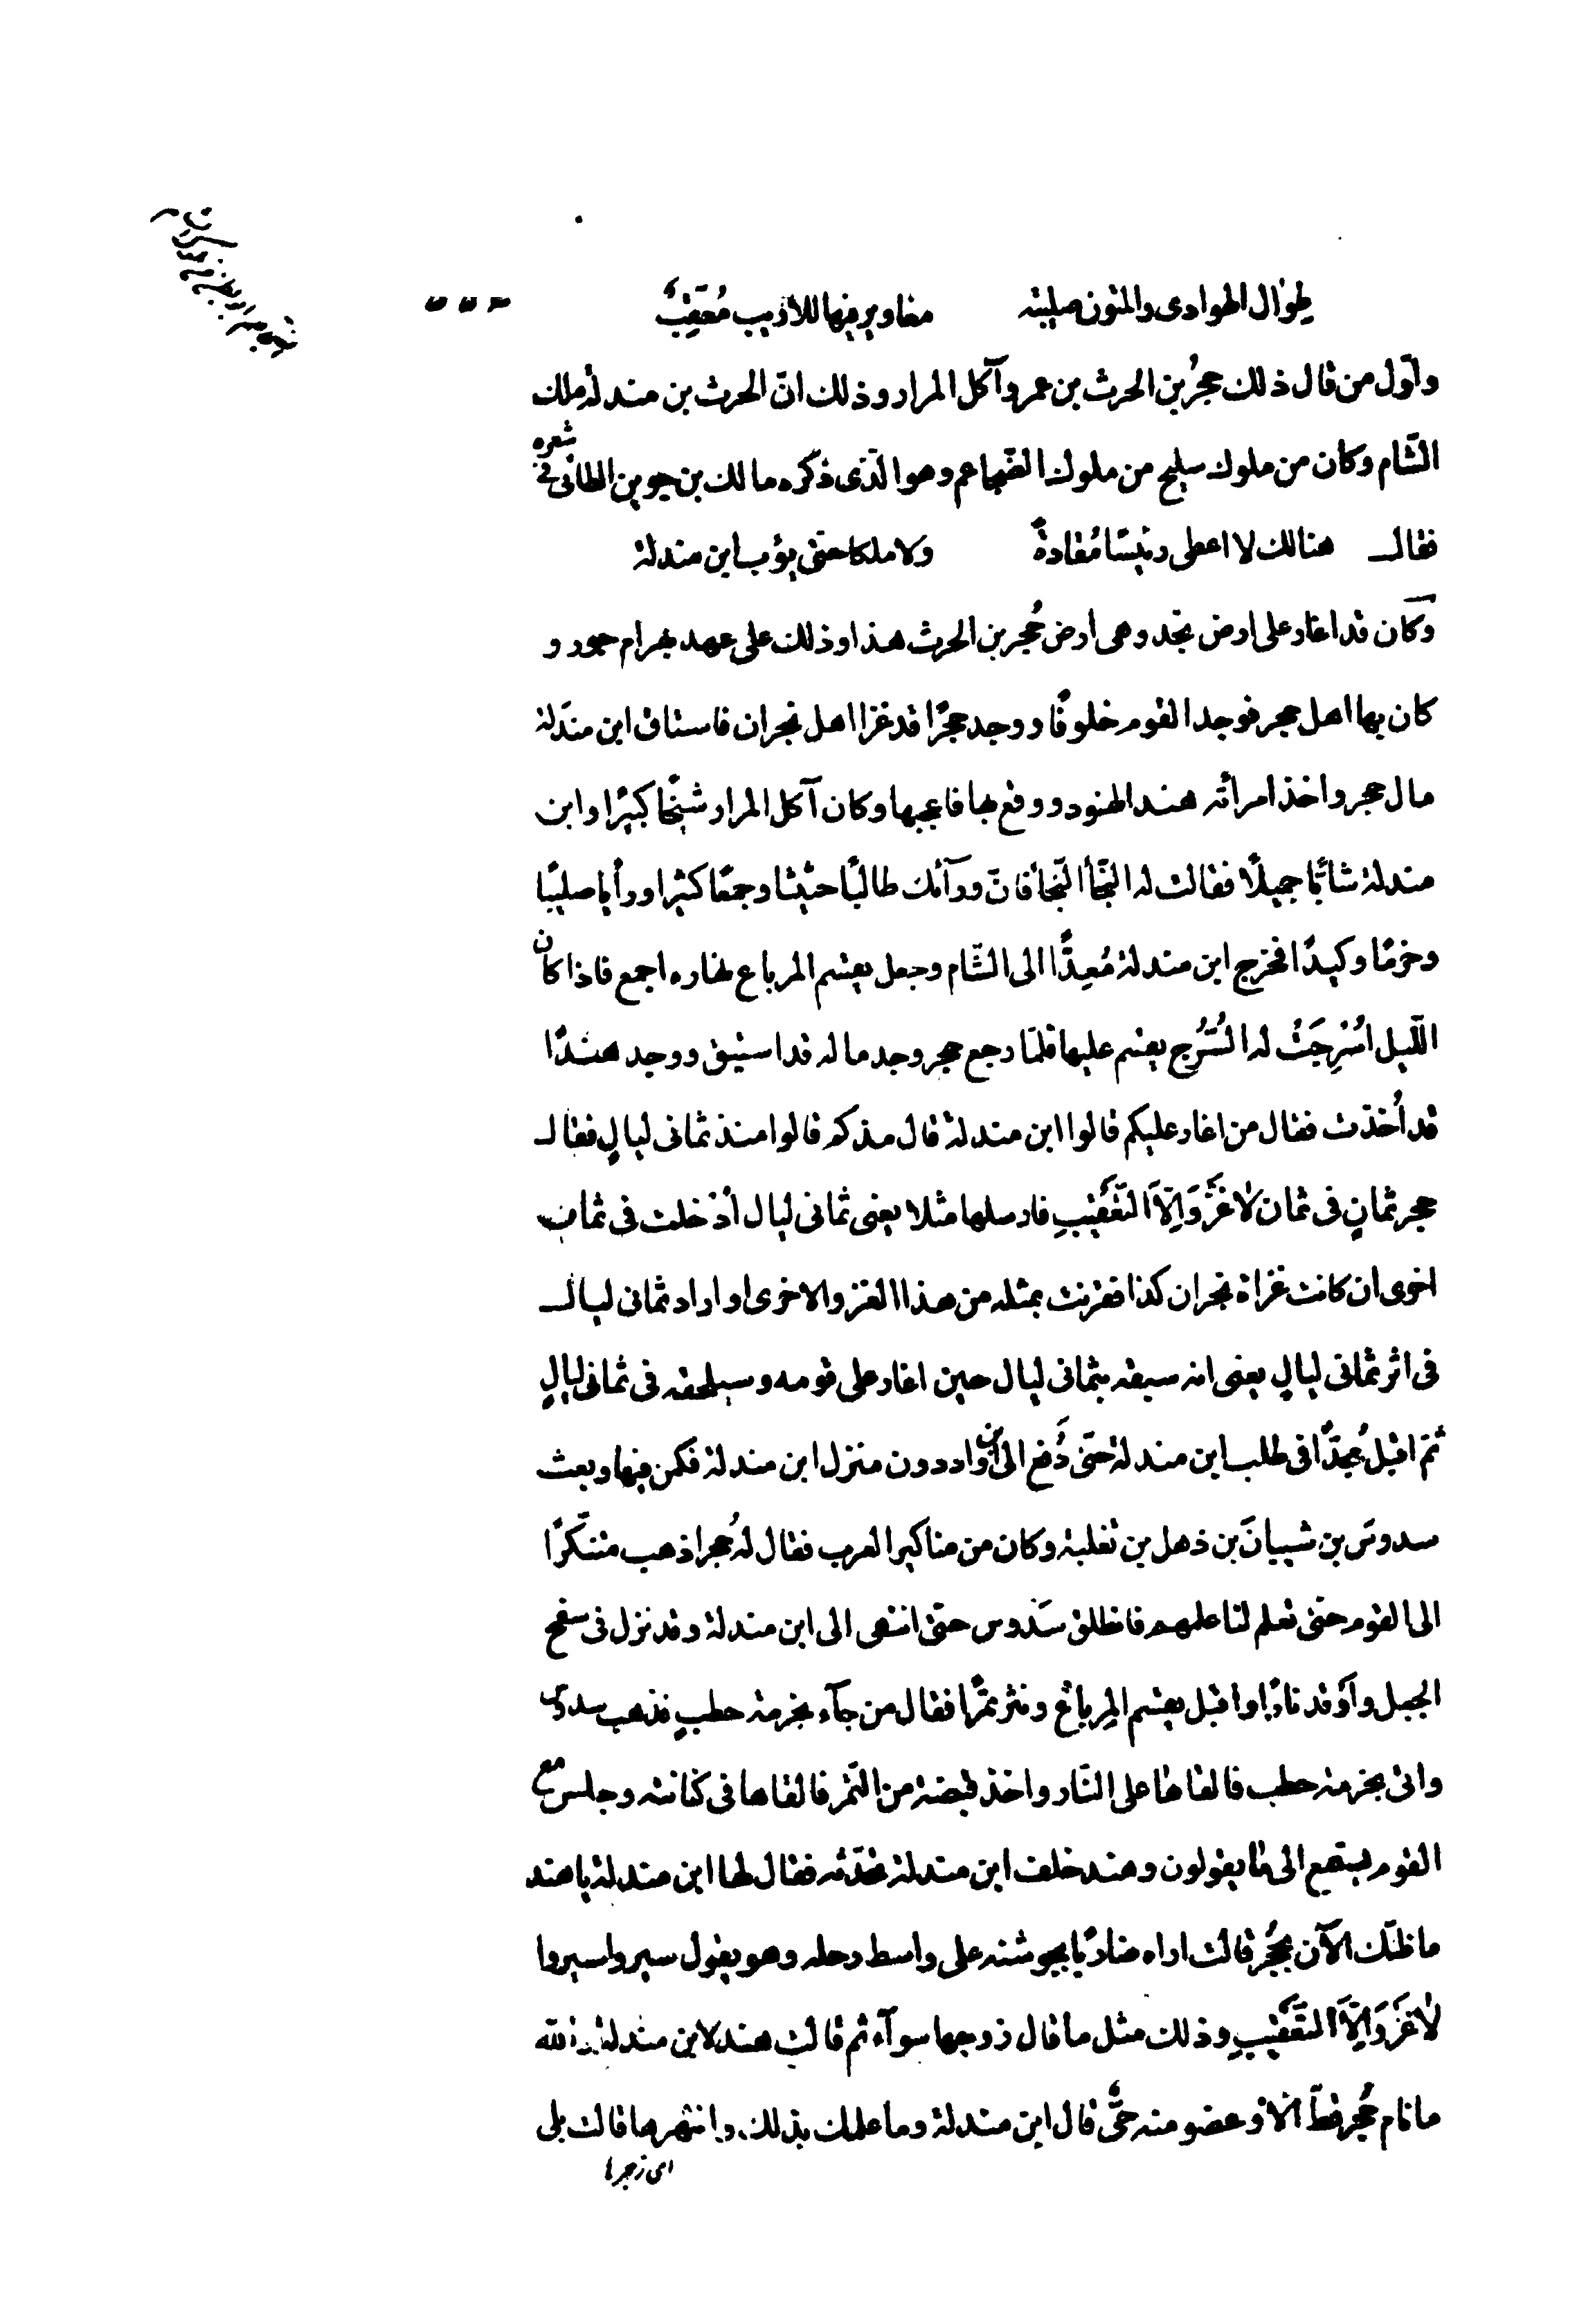 طوال الهوادى والمتون صليبة مغاوير فيها للاديب مُعَقِّبُ
واوّل من قال ذلك حجرُ بن الحرث بن عمرو آكل المرار وذلك انّ الحرث بن مندلة ملك
الشّام وكان من ملوك سليح من ملوك الضّجاعم وهو الّذى ذكره مالك بن جوين الطائى فى شعره
فقال هنالك لا اعطى رئيسًا مُقادةً ولا ملكا حتّى يؤب ابن مندلة
وكان قد اغار على ارض نجد وهى ارض حُجر بن الحرث هذا وذلك على عهد بهرام جور و
كان بها اهل حجر فوجد القوم خلوفًا ووجد حجرًا قد غزا اهل نجران فاستاق ابن مندَلة
مال حجر واخذ امرأته هند الهنود ووقع بها فاعجبها وكان آكل المرار شيخًا كبيرًا وابن
مندلة شابًّا جميلًا فقالت له النّجأ النّجأ فانّ ورآئك طالبًا حثيثا وجمعًا كثيرا ورأيا صليبًا
وحزمًا وكيدًا فخرج ابن مندلة مُغِذًّا الى الشّام وجعل يقسم المرباع نهاره اجمع فاذا كان
اللّيل اسْرِجَتْ له السُّرُج يقسم عليها فلمّا رجع حجر وجد ماله قد استيق ووجد هندًا
قد أخذت فقال من اغار عليكم قالوا ابن مندلة قال مذ كم قالوا منذ ثمانى ليالٍ فقال
حجر ثمانٍ فى ثمان لا غَزْوَ اِلَّا التَّعْقِيبِ فارسلها مثلا يعنى ثمانى ليال أدخلت فى ثمان
اخرى ان كانت غزاة نجران كذا فقرنت بمثله من هذا الغزو الاخرى او اراد ثمانى ليال
فى اثر ثمانى ليالٍ يعنى انه سبقه بثمانى ليال حين اغار على قومه وسيلحقه فى ثمانى ليالٍ
ثمّ اقبل مُجِدًّا فى طلب ابن مندلة حتّى دُفع الى وادٍ دون منزل ابن مندلة فكمن فيها وبعث
سدوس بن شيبانَ بن ذهل بن ثعلبة وكان من مناكير العرب فقال له حُجر اذهب متنكّرًا
الى القوم حتّى تعلم لنا علمهم فانطلق سَدوس حتّى انتهى الى ابن مندلة وقد نزل فى سفح
الجبل واَوقد نارًا واقبل يقسم المِرباعَ ونثر تمرًا فقال من جآء بحزمة حطبٍ فذهب سدوس
واتى بحزمة حطب فالقاها على النّار واخذ قبضة من التّمر فالقاها فى كنانته وجلس مع
القوم يستمع الى ما يقولون وهند خلف ابن مندلة تحدّثه فقال لها ابن مندلة يا هند
ما ظنّك الآن بحُجر قالت اراه ضاربًا بجوشنه على واسط رحله وهو يقول سيروا سيروا
لا غَزْوَ اِلَّا التَّعْقِيبِ وذلك مثل ما قال زوجها سوآء ثم قالت هند لابن مندلة والله
ما نام حُجر قطّ الّا وعضو منه حىٌّ قال ابن مندلة وما علمك بذلك وانتهرها قالت بلى
اى زجرها